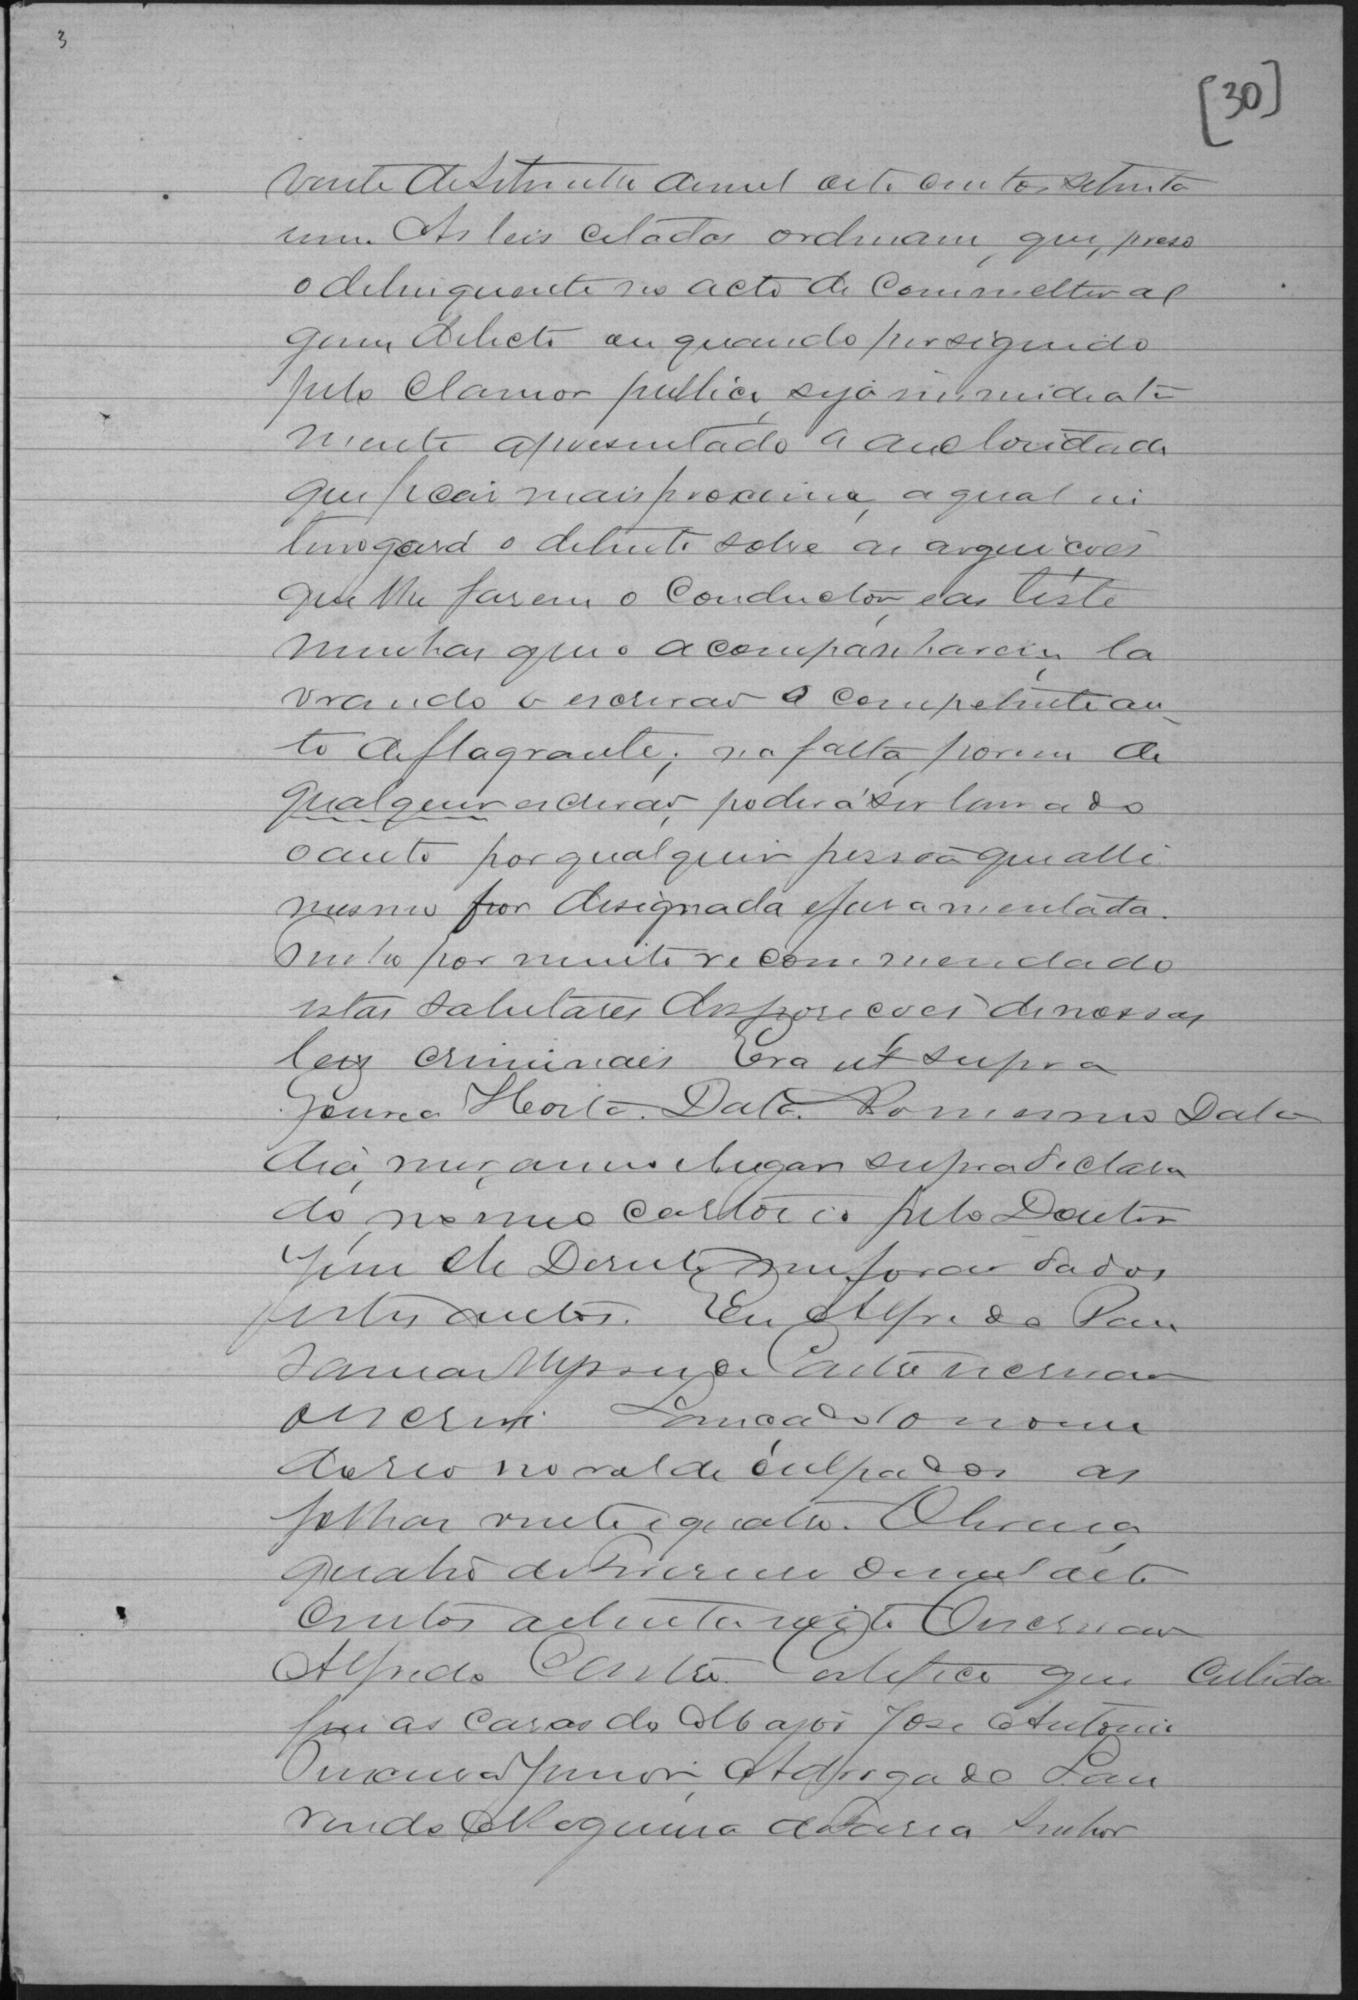 3
[30]
vinte de Setembro de mil oito centos setenta
um. As leis citadas ordenam, que, preso
o delinquente no acto de commetter al
gum delicto ou quando perseguido
pelo clamor publico, seja immediata
mente apresentado a auctoridade
que ficar mais proxima, a qual in
terrogará o detento sobre as arguicoes
que lhe fazem o conductor, e as teste
munhas que o acompanharem, la
vrando o escrivao o competente au
to de flagrante; na falta porem de
qualquer escrivao, poderá ser lavrado
o auto por qualquer pessoa que alli
mesmo for designada e juramentada.
Tenho por muito recommendado
estas salutares disposicoes de nossas
leis criminaes Era ut supra
Horta. Data. No mesmo Data
dia, mez, anno e lugar supra declara
do, no meo cartorio pelo Doutor
Juiz de Direito me forao dados
estes autos. Eu Alfredo
de Castro escrivao
o escrevi Lançado o nome
do reo no rol de culpados as
folhas vinte e quatro.
quatro de Fevereiro de mil oito
centos oitenta e oito O escrivao
Alfredo Castro. Certifico que
fui as casas do Major Jose Antonio
Junior, Advogado Lau
rindo Nogueira de Faria Senhor